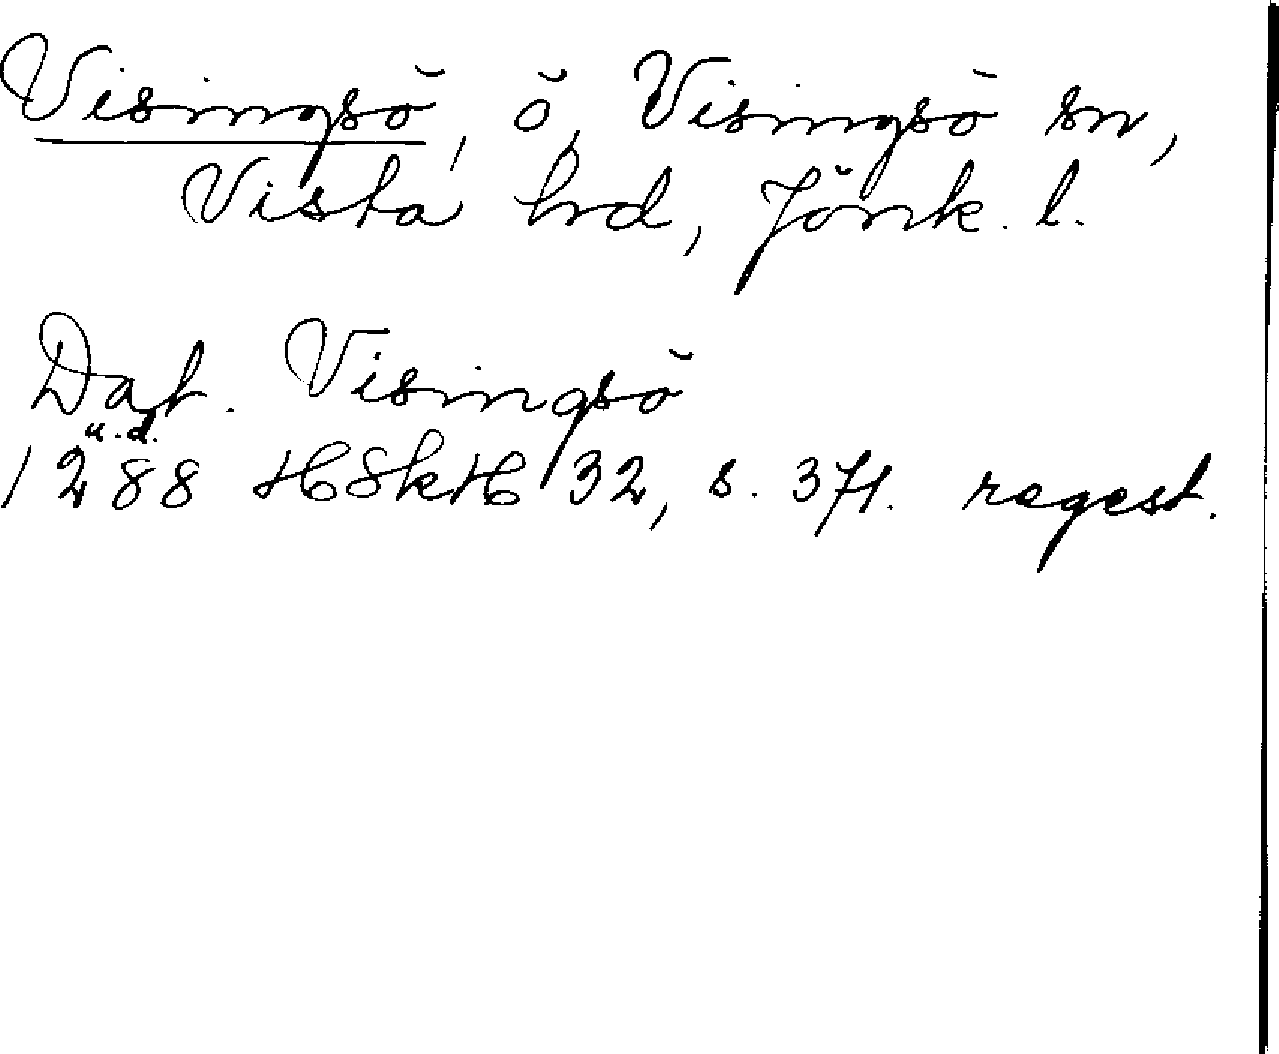 Visingsö, ö, Visingsö sn,
Vista hd, Jönk. l.
Dat. Visingsö
u.d.
1288 HSkH 32, s. 371. regest.